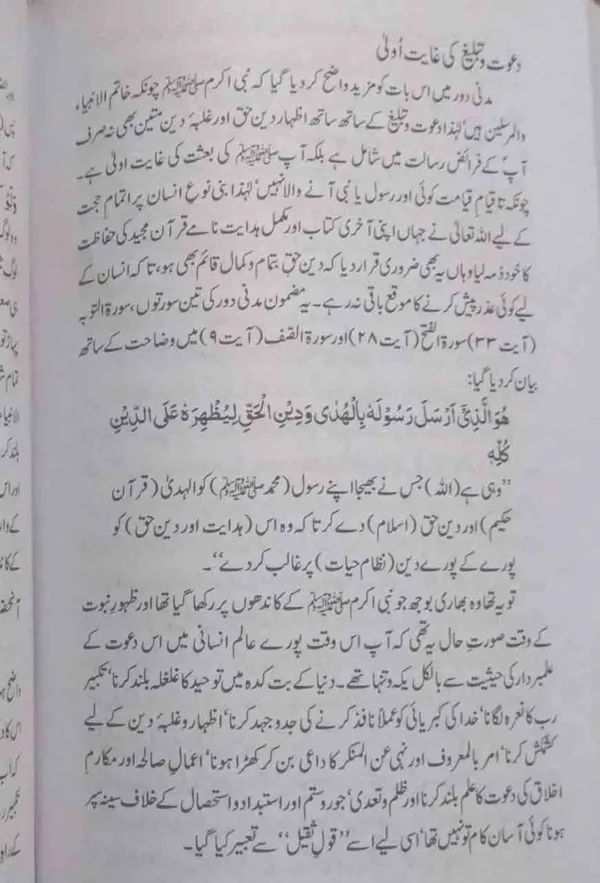 دعوت و تبلیغ کی غایت اُولیٰ
مدنی دور میں اس بات کو مزید واضح کر دیا گیا کہ نبی اکرم ﷺ چونکہ خاتم الانبیاء،
والمرسلین ہیں‘ لہٰذا دعوت و تبلیغ کے ساتھ ساتھ اظہار دین حق اور غلبۂ دین متین بھی نہ صرف
آپؐ کے فرائض رسالت میں شامل ہے بلکہ آپ ﷺ کی بعثت کی غایت اولیٰ ہے۔
چونکہ تا قیامِ قیامت کوئی اور رسول یا نبی آنے والا نہیں‘ لہٰذا بنی نوع انسان پر اتمام حجت
کے لیے اللہ تعالیٰ نے جہاں اپنی آخری کتاب اور مکمل ہدایت نامے قرآن مجید کی حفاظت
کا خود ذمہ لیا وہاں یہ بھی ضروری قرار دیا کہ دین حق بتمام و کمال قائم بھی ہو، تاکہ انسان کے
لیے کوئی عذر پیش کرنے کا موقع باقی نہ رہے۔ یہ مضمون مدنی دور کی تین سورتوں، سورۃ التوبہ
(آیت ۳۳) سورۃ الفتح (آیت ۲۸) اور سورۃ الصّف (آیت ۹) میں وضاحت کے ساتھ
بیان کر دیا گیا:
هُوَ الَّذِیْۤ اَرْسَلَ رَسُوْلَهٗ بِالْهُدٰی وَدِیْنِ الْحَقِّ لِیُظْهِرَهٗ عَلَی الدِّیْنِ
كُلِّهٖ
”وہی ہے (اللہ) جس نے بھیجا اپنے رسول (محمد ﷺ) کو الہدیٰ (قرآن
حکیم) اور دین حق (اسلام) دے کر تا کہ وہ اس (ہدایت اور دین حق) کو
پورے کے پورے دین (نظام حیات) پر غالب کر دے“۔
تو یہ تھا وہ بھاری بوجھ جو نبی اکرم ﷺ کے کاندھوں پر رکھا گیا تھا اور ظہورِ نبوت
کے وقت صورتِ حال یہ تھی کہ آپ اس وقت پورے عالم انسانی میں اس دعوت کے
علمبردار کی حیثیت سے بالکل یکہ و تنہا تھے۔ دنیا کے بت کدہ میں توحید کا غلغلہ بلند کرنا‘ تکبیر
رب کا نعرہ لگانا‘ خدا کی کبریائی کو عملاً نافذ کرنے کی جدوجہد کرنا‘ اظہار و غلبۂ دین کے لیے
کشمکش کرنا‘ امر بالمعروف اور نہی عن المنکر کا داعی بن کر کھڑا ہونا‘ اعمالِ صالحہ اور مکارم
اخلاق کی دعوت کا علم بلند کرنا اور ظلم و تعدی‘ جور و ستم اور استبداد و استحصال کے خلاف سینہ سپر
ہونا کوئی آسان کام تو نہیں تھا‘ اسی لیے اسے ”قولِ ثقیل“ سے تعبیر کیا گیا۔